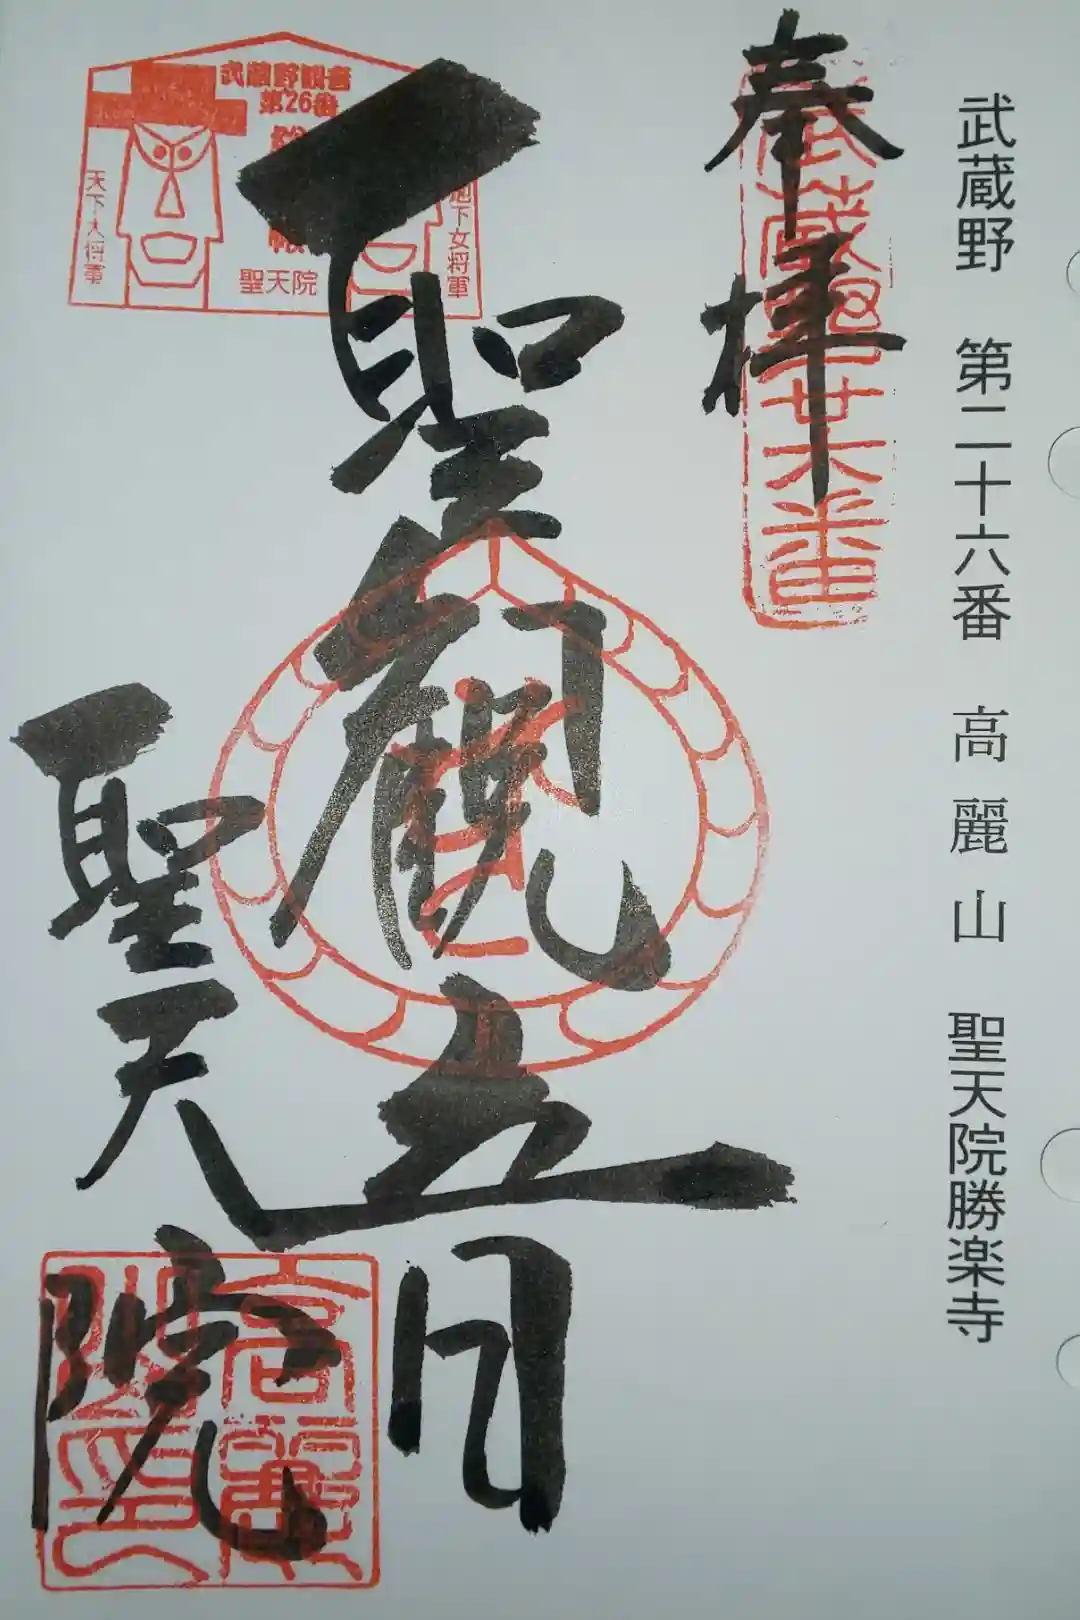 武蔵野 第二十六番 高麗山 聖天院勝楽寺
奉拝
武蔵野廿六番
聖観音
聖天院
武蔵野観音
第26番
天下大将軍
地下女将軍
聖天院
高麗山印